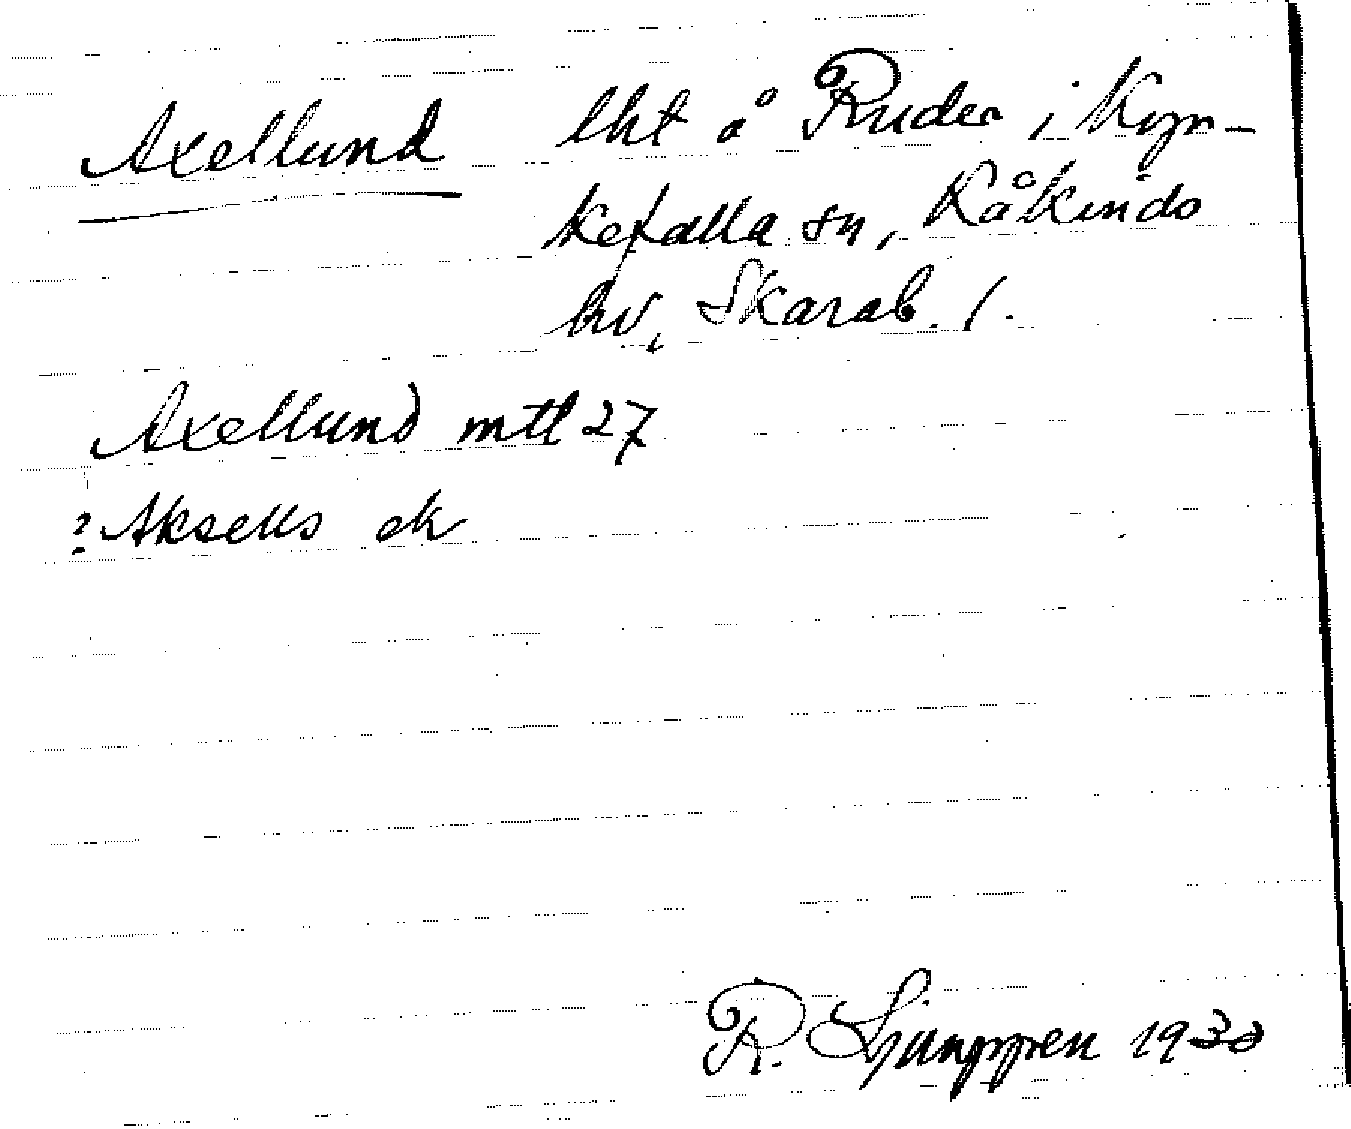 Axellund lht å Ruder i Kyr-
kefalla sn, Kåkinds
hd, Skarab. l.
Axellund mtl 27
? Aksells ek
R. Ljunggren 1930